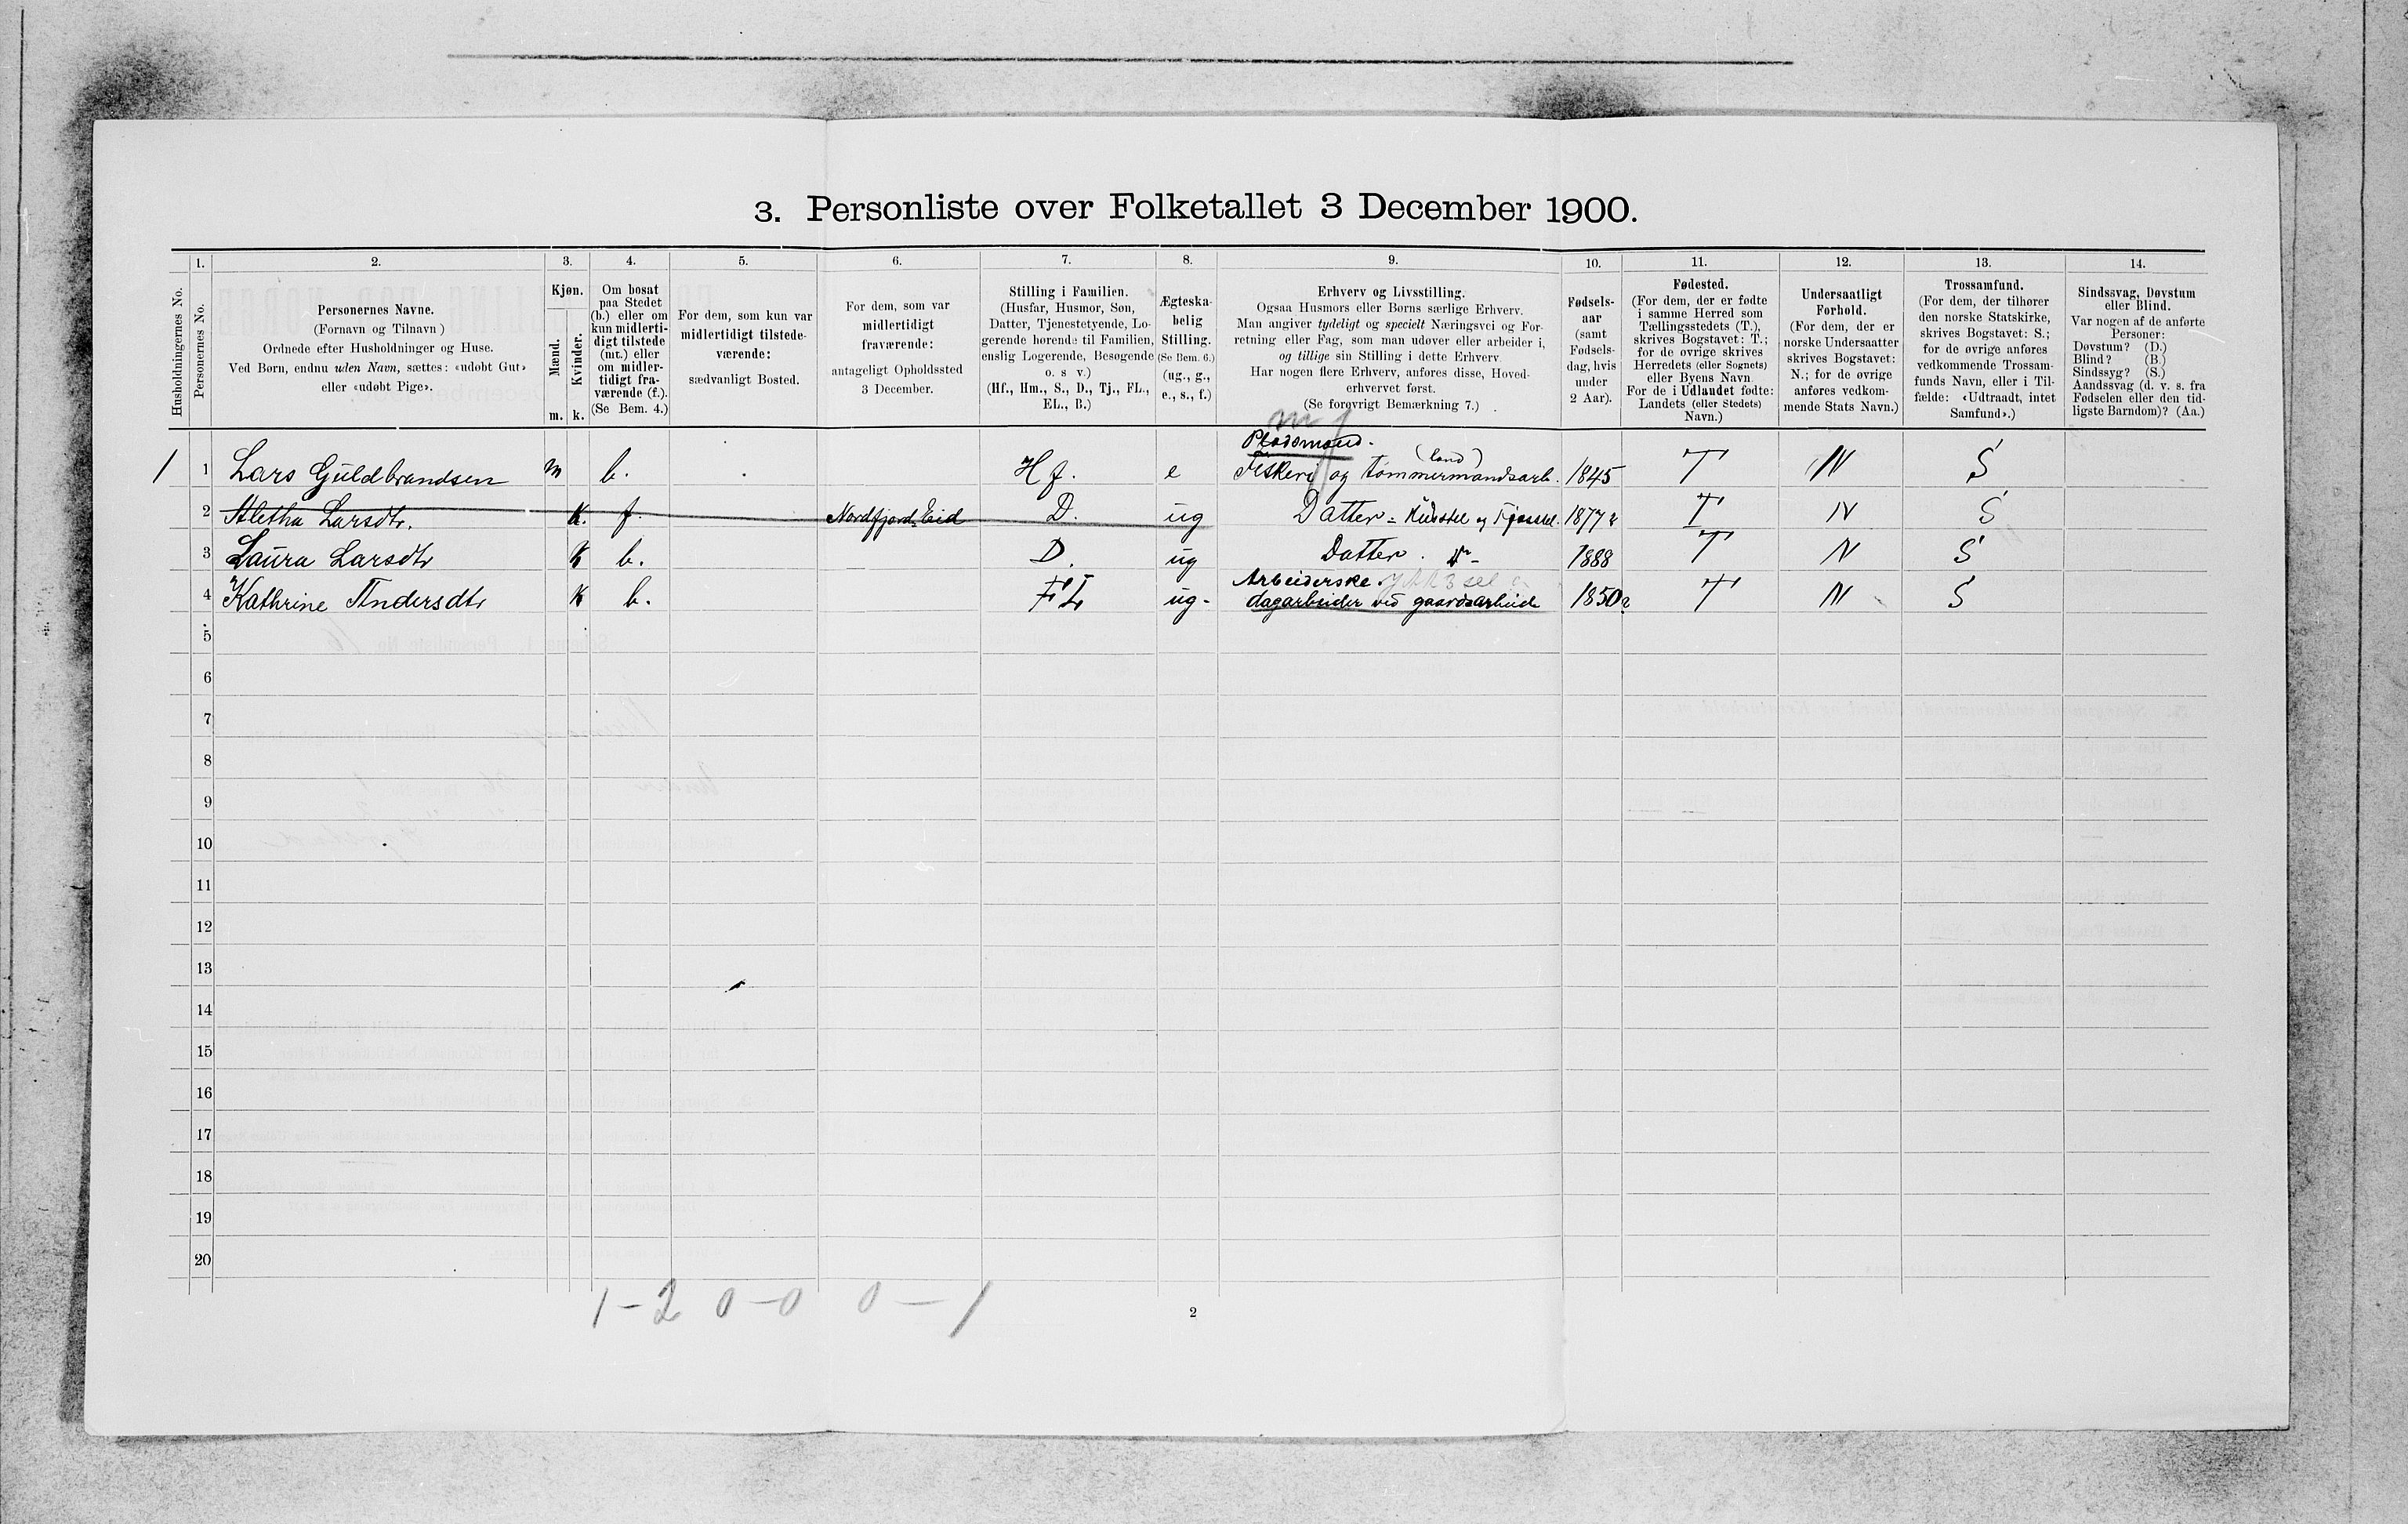 3. Personliste over Folketallet 3 December 1900.
Husholdningernes No.
1.
Personernes No.
2.
Personernes Navne.
(Fornavn og Tilnavn)
Ordnede efter Husholdninger og Huse.
Ved Børn, endnu uden Navn, sættes: «udøbt Gut»
eller «udøbt Pige».
3.
Kjøn.
Mænd.
Kvinder.
m. k.
4.
Om bosat
paa Stedet
(b.) eller om
kun midlerti-
digt tilstede
(mt.) eller
om midler-
tidigt fra-
værende (f.).
(Se Bem. 4.)
5.
For dem, som kun var
midlertidigt tilstede-
værende:
sædvanligt Bosted.
6.
For dem, som var
midlertidigt
fraværende:
antageligt Opholdssted
3 December.
7.
Stilling i Familien.
(Husfar, Husmor, Søn,
Datter, Tjenestetyende, Lo-
gerende hørende til Familien,
enslig Logerende, Besøgende
o. s v.)
(Hf., Hm., S., D., Tj., FL.,
EL., B.)
8.
Ægteska-
belig
Stilling.
(Se Bem. 6.)
(ug., g.,
e., s., f.)
9.
Erhverv og Livsstilling.
Ogsaa Husmors eller Børns særlige Erhverv.
Man angiver tydeligt og specielt Næringsvei og For-
retning eller Fag, som man udøver eller arbeider i,
og tillige sin Stilling i dette Erhverv.
Har nogen flere Erhverv, anføres disse, Hoved-
erhvervet først.
(Se forøvrigt Bemærkning 7.)
10.
Fødsels-
aar
(samt
Fødsels-
dag, hvis
under
2 Aar).
11.
Fødested.
(For dem, der er fødte
i samme Herred som
Tællingsstedets (T.),
skrives Bogstavet: T.;
for de øvrige skrives
Herredets (eller Sognets)
eller Byens Navn.
For de i Udlandet fødte:
Landets (eller Stedets)
Navn.)
12.
Undersaatligt
Forhold.
(For dem, der er
norske Undersaatter
skrives Bogstavet:
N.; for de øvrige
anføres vedkom-
mende Stats Navn.)
13.
Trossamfund.
(For dem, der tilhører
den norske Statskirke,
skrives Bogstavet: S.;
for de øvrige anføres
vedkommende Trossam-
funds Navn, eller i Til-
fælde: «Udtraadt, intet
Samfund».)
14.
Sindssvag, Døvstum
eller Blind.
Var nogen af de anførte
Personer:
Døvstum? (D.)
Blind? (B.)
Sindssyg? (S.)
Aandssvag (d. v. s. fra
Fødselen eller den tid-
ligste Barndom)? (Aa.)
Pladsmand. (land)
1 1 Lars Guldbrandsen m b. Hf. e Fiskeri og tømmermandsarb. 1845 T N S
2 Aletha Larsdtr. K. f. Nordfjord Eid D. ug Datter = Husstel og Fjøsstel. 1877 T N S
3 Laura Larsdtr K b. D. ug Datter. 1888 T N S
Arbeiderske
4 Kathrine Andersdtr K b. FL ug- dagarbeider ved gaardsarbeide 1850 T N S
5
6
7
8
9
10
11
12
13
14
15
16
17
18
19
20
1-2 0-0 0-1
2